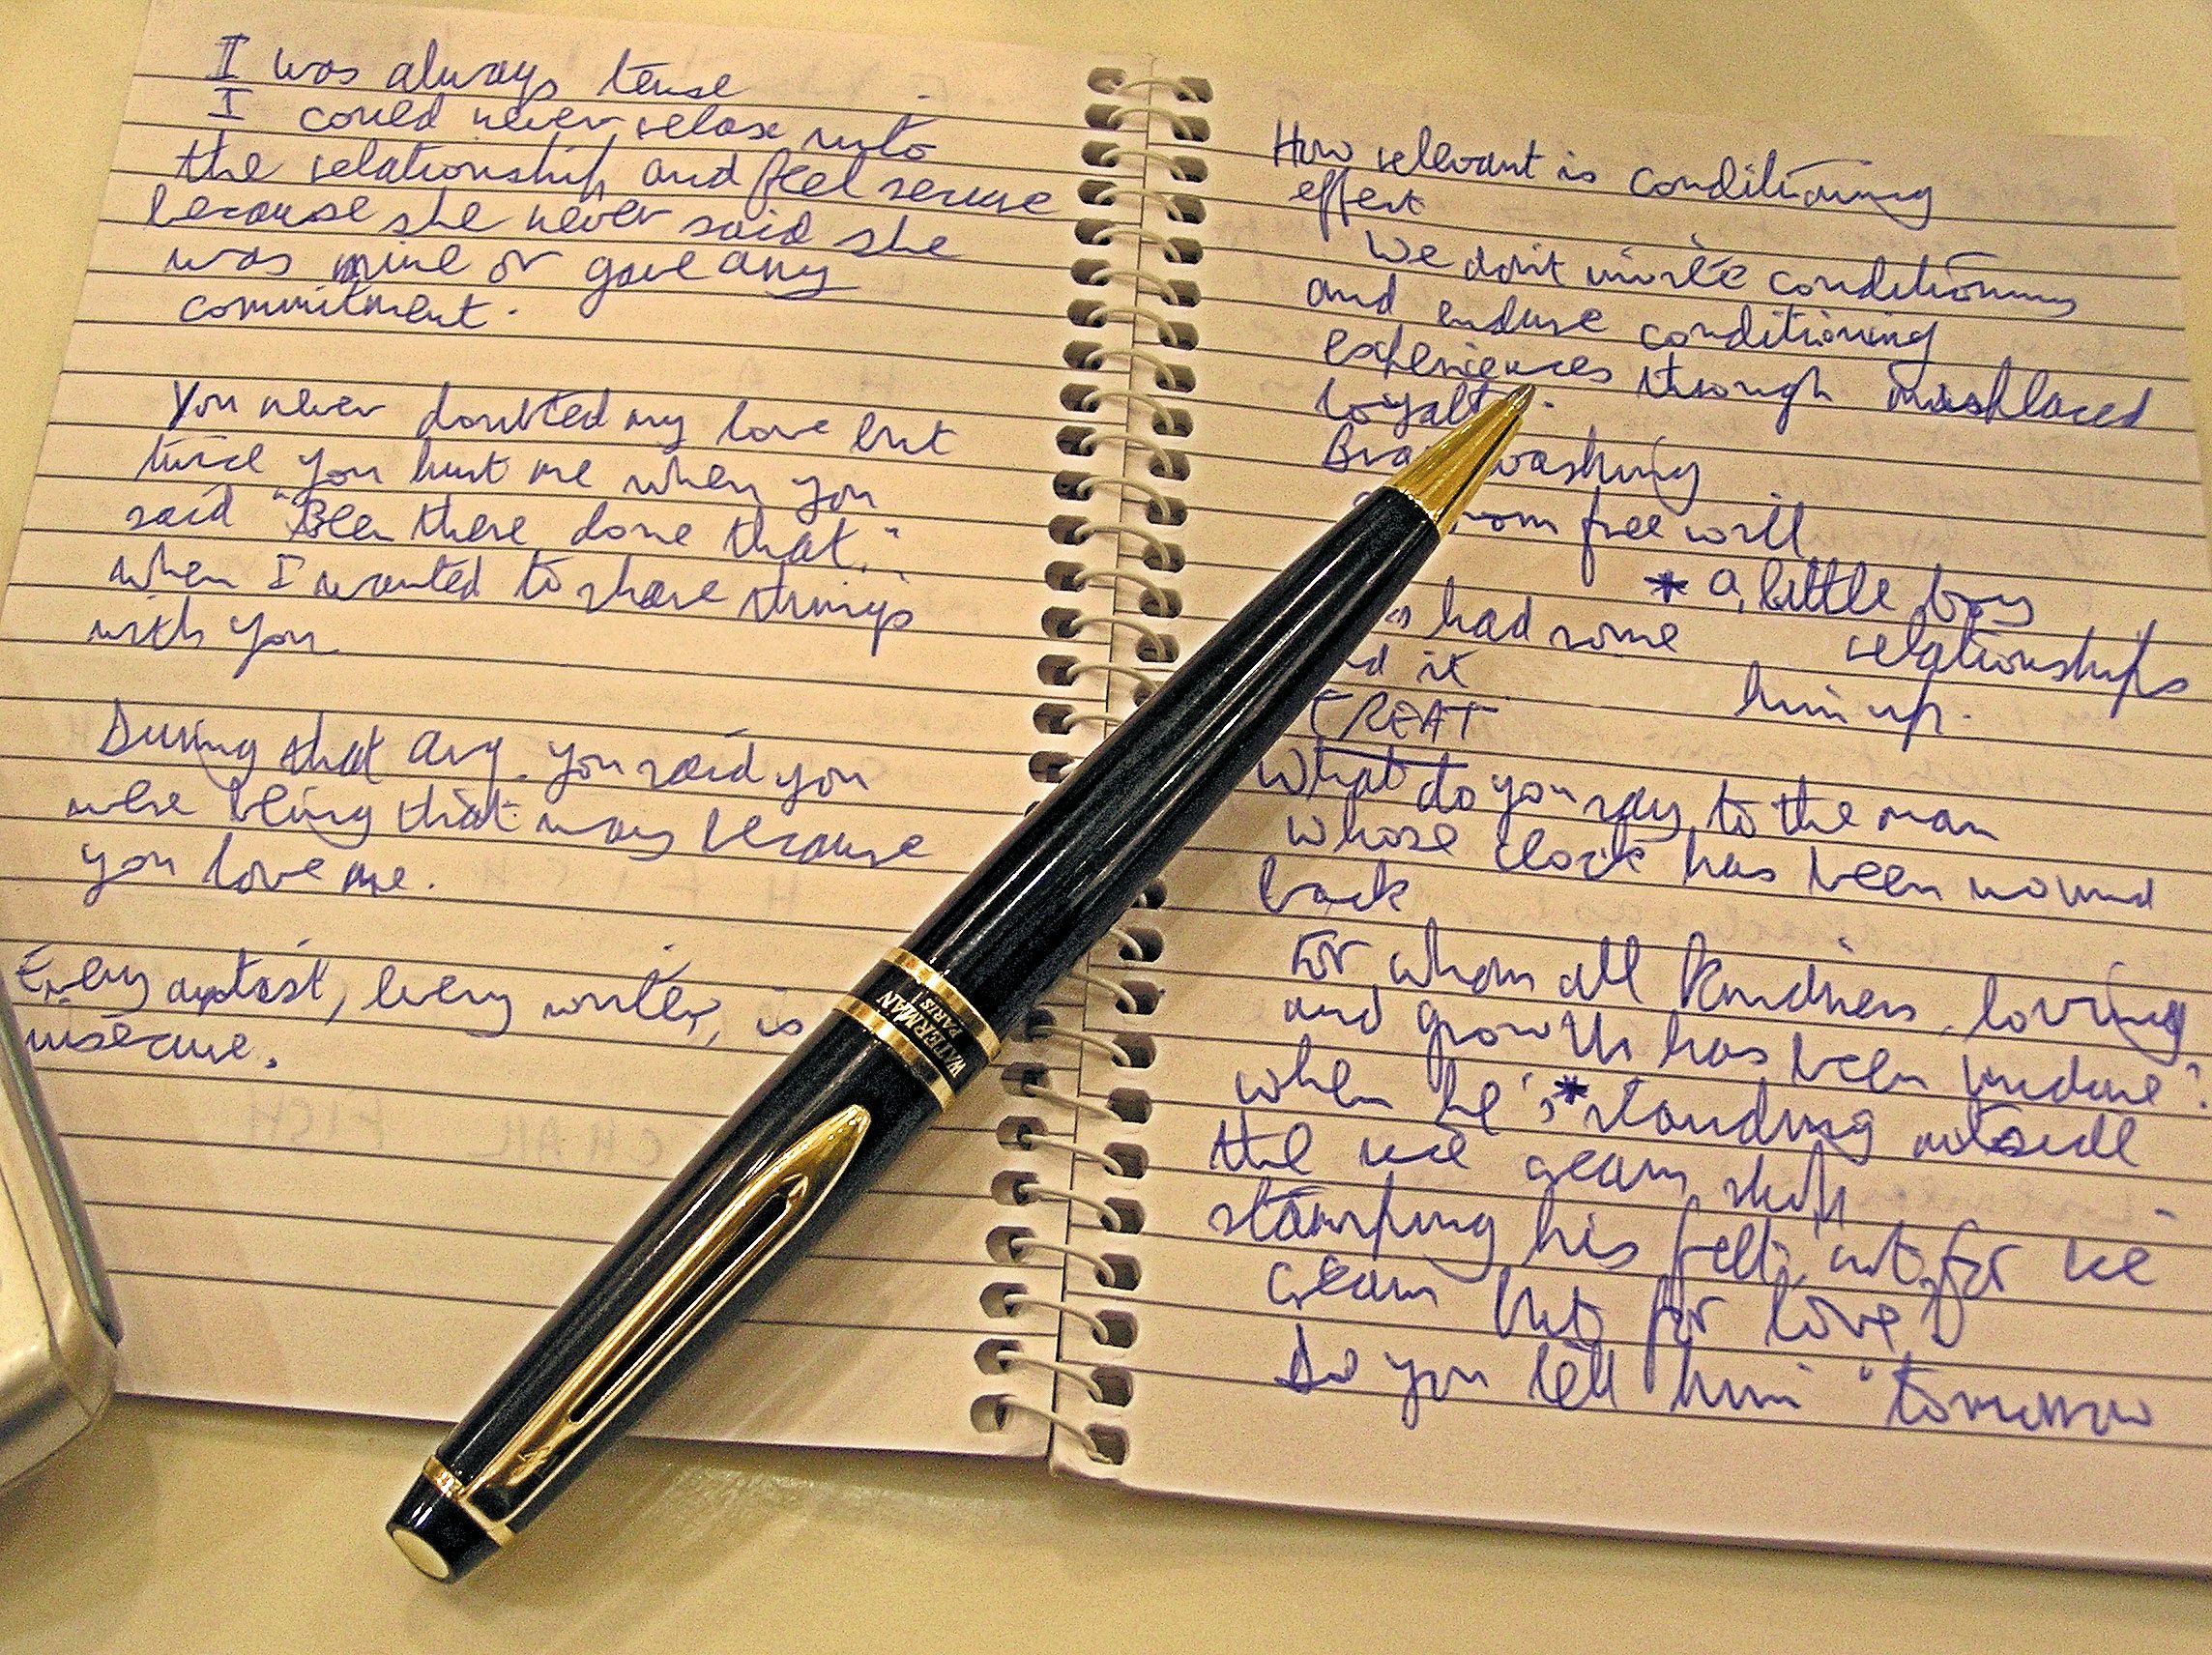 I was always tense
I could never relax into
the relationship and feel secure
because she never said she
was mine or gave any
commitment.
You never doubted my love but
twice you hurt me when you
said "Been there done that."
when I wanted to share things
with you
During that arg. you said you
were being that way because
you love me.
Every artist, every writer, is
insecure.
WATERMAN
PARIS
How relevant is conditioning
effect
We don't invite conditioning
and endure conditioning
experiences through misplaced
loyalty.
washing
from free will
* a little boy
had some relationships
it him up.
TREAT
What do you say to the man
whose clock has been wound
back
For whom all kindness, loving
and growth has been undone?
when he's * standing outside
the ice cream shop
stamping his feet, not for ice
cream but for love?
Do you tell him "tomorrow